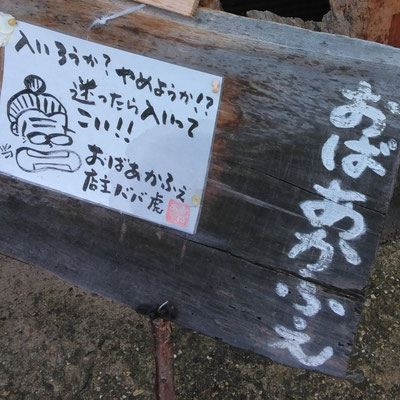 入いろうか？やめようか!?
迷ったら入いって
こい!!
おばあかふぇ
店主ババ虎
おばあかふぇ